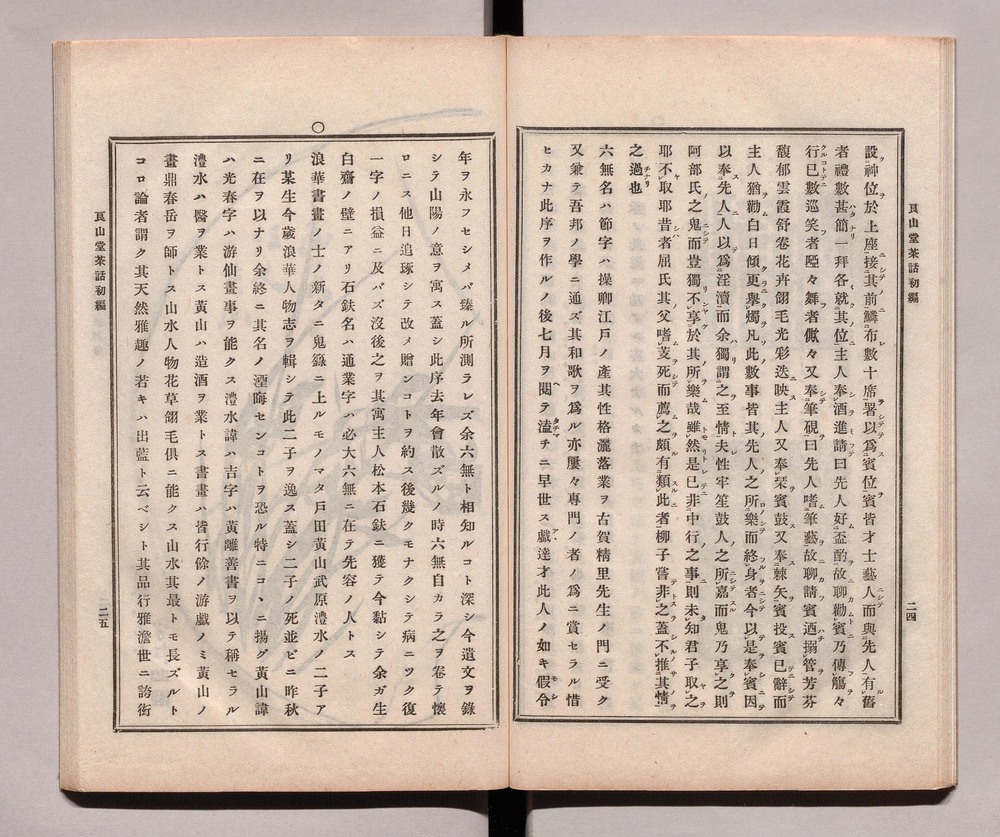 頁山堂茶話初編
二四
設神位於上座接其前鱗布數十席署以爲賓位賓皆才士藝人而與先人有舊
者禮數甚簡一拜各就其位主人奉酒進請曰先人好盃酌故聊勸賓乃傳觴々
行已數巡笑者啞々舞者僛々又奉筆硯曰先人嗜筆藝故聊請賓洒搦管芳芬
馥郁雲霞舒卷花卉翎毛光彩迭映主人又奉琹賓鼓又奉棘矢賓投賓已辭而
主人猶勸白日傾更擧燭凡此數事皆其先人之所樂而終身者今以是奉賓因
以奉先人人以爲淫瀆而余獨謂之至情夫性牢笙鼓人之所嘉而鬼乃享之則
阿部氏之鬼而豈獨不享於其所樂哉雖然是已非中行之事則未知君子取之
耶不取耶昔者屈氏其父嗜芰死而薦之頗有類此者柳子嘗非之蓋不推其情
之過也
六無名ハ節字ハ操卿江戸ノ產其性格灑落業ヲ古賀精里先生ノ門ニ受ク
又兼テ吾邦ノ學ニ通ズ其和歌ヲ爲ル亦屢々專門ノ者ノ爲ニ賞セラル惜
ヒカナ此序ヲ作ルノ後七月ヲ閱テ溘チニ早世ス戯達才此人ノ如キ假令
年ヲ永フセシメバ臻ル所測ラレズ余六無ト相知ルコト深シ今遺文ヲ錄
シテ山陽ノ意ヲ寓ス蓋シ此序去年會散ズルノ時六無自カラ之ヲ卷テ懷
ロニス他日追琢シテ改メ贈ンコトヲ約ス後幾クモナクシテ病ニツク復
一字ノ損益ニ及バズ沒後之ヲ其寓主人松本石鈇ニ獲テ今黏シテ余ガ生
白齋ノ壁ニアリ石鈇名ハ通業字ハ必大六無ニ在テ先容ノ人トス
〇
浪華書畫ノ士ノ新タニ鬼籙ニ上ルモノマタ戸田黃山武原澧水ノ二子ア
リ某生今歲浪華人物志ヲ輯シテ此二子ヲ逸ス蓋シ二子ノ死並ビニ昨秋
ニ在ヲ以ナリ余終ニ其名ノ湮晦センコトヲ恐ル特ニコヽニ揚グ黃山諱
ハ光春字ハ游仙畫事ヲ能クス澧水諱ハ吉字ハ黃離善書ヲ以テ稱セラル
澧水ハ醫ヲ業トス黃山ハ造酒ヲ業トス書畫ハ皆行餘ノ游戯ノミ黃山ノ
畫鼎春岳ヲ師トス山水人物花草翎毛俱ニ能クス山水其最トモ長ズルト
コロ論者謂ク其天然雅趣ノ若キハ出藍ト云ベシト其品行雅澹世ニ誇衒
頁山堂茶話初編
二五